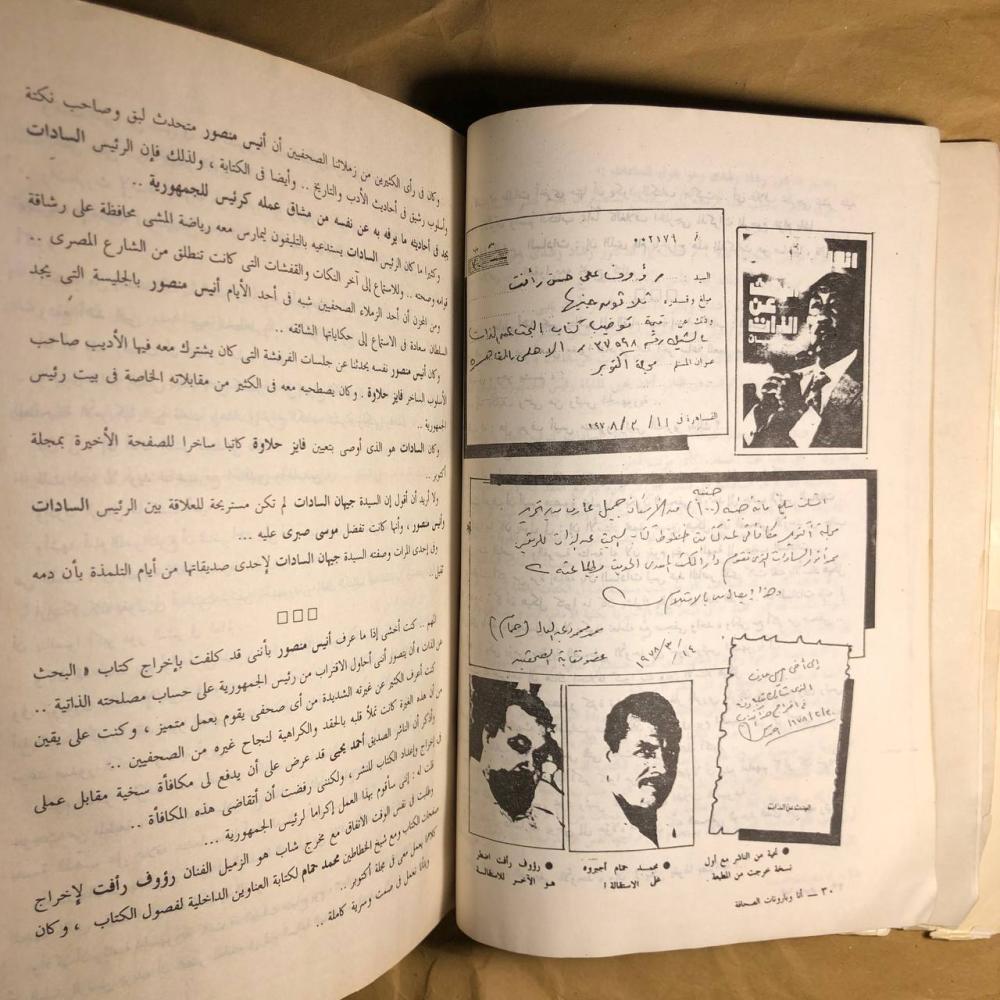 وكان فى رأى الكثيرين من زملائنا الصحفيين أن أنيس منصور متحدث لبق وصاحب نكتة
وأسلوب رشيق فى أحاديث الأدب والتاريخ .. وأيضا فى الكتابة ، ولذلك فإن الرئيس السادات
يجد فى أحاديثه ما يرفه به عن نفسه من مشاق عمله كرئيس للجمهورية ..
وكثيرا ما كان الرئيس السادات يستدعيه بالتليفون ليمارس معه رياضة المشى محافظة على رشاقة
قوامه وصحته .. وللاستماع إلى آخر النكات والقفشات التى كانت تنطلق من الشارع المصرى ..
ومن المحزن أن أحد الزملاء الصحفيين شبه فى أحد الأيام أنيس منصور بالجليسة التى يجد
السلطان سعادة فى الاستماع إلى حكاياتها الشائقه ..
وكان أنيس منصور نفسه يحدثنا عن جلسات الفرفشة التى كان يشترك معه فيها الأديب صاحب
الأسلوب الساخر فايز حلاوة . وكان يصطحبه معه فى الكثير من مقابلاته الخاصة فى بيت رئيس
الجمهورية ..
وكان السادات هو الذى أوصى بتعيين فايز حلاوة كاتبا ساخرا للصفحة الأخيرة بمجلة
أكتوبر ..
ولا أريد أن أقول إن السيدة جيهان السادات لم تكن مستريحة للعلاقة بين الرئيس السادات
وأنيس منصور ، وأنها كانت تفضل موسى صبرى عليه ...
وفى إحدى المرات وصفته السيدة جيهان السادات لإحدى صديقاتها من أيام التلمذة بأن دمه
ثقيل ..
المهم .. كنت أخشى إذا ما عرف أنيس منصور بأننى قد كلفت بإخراج كتاب « البحث
عن الذات » أن يتصور أننى أحاول الاقتراب من رئيس الجمهورية على حساب مصلحته الذاتية ..
كنت أعرف الكثير عن غيرته الشديدة من أى صحفى يقوم بعمل متميز ، وكنت على يقين
من أن هذه الغيرة كانت تملأ قلبه بالحقد والكراهية لنجاح غيره من الصحفيين ..
وأذكر أن الناشر الصديق أحمد يحيى قد عرض على أن يدفع لى مكافأة سخية مقابل عملى
فى إخراج وإعداد الكتاب للنشر ، ولكننى رفضت أن أتقاضى هذه المكافأة ..
قلت له : إننى سأقوم بهذا العمل إكراما لرئيس الجمهورية ...
وطلبت فى نفس الوقت الاتفاق مع مخرج شاب هو الزميل الفنان رؤوف رأفت لإخراج
صفحات الكتاب ومع شيخ الخطاطين محمد حمام لكتابة العناوين الداخلية لفصول الكتاب ، وكان
كلاهما يعمل معى فى مجلة أكتوبر ..
وبدأنا نعمل فى صمت وسرية كاملة ..
السيد / رؤوف على حسن رأفت
مبلغ وقدره ثلاثون جنيها
وذلك عن قيمة توضيب كتاب البحث عن الذات
بالشيك رقم ٣٧٥٩٨ . الأهلى بالقاهرة
عنوان المستلم مجلة أكتوبر
القاهرة فى ١١ / ٣ / ١٩٧٨
عن
الذات
١٩٧٨/٣/١٤
البحث عن الذات
● تحية من الناشر مع أول
نسخة خرجت من المطبعة .
● محمد حمام أجبروه
على الاستقالة !
● رؤوف رأفت اضطر
هو الآخر للاستقالة
٣٠ ــ أنا وبارونات الصحافة